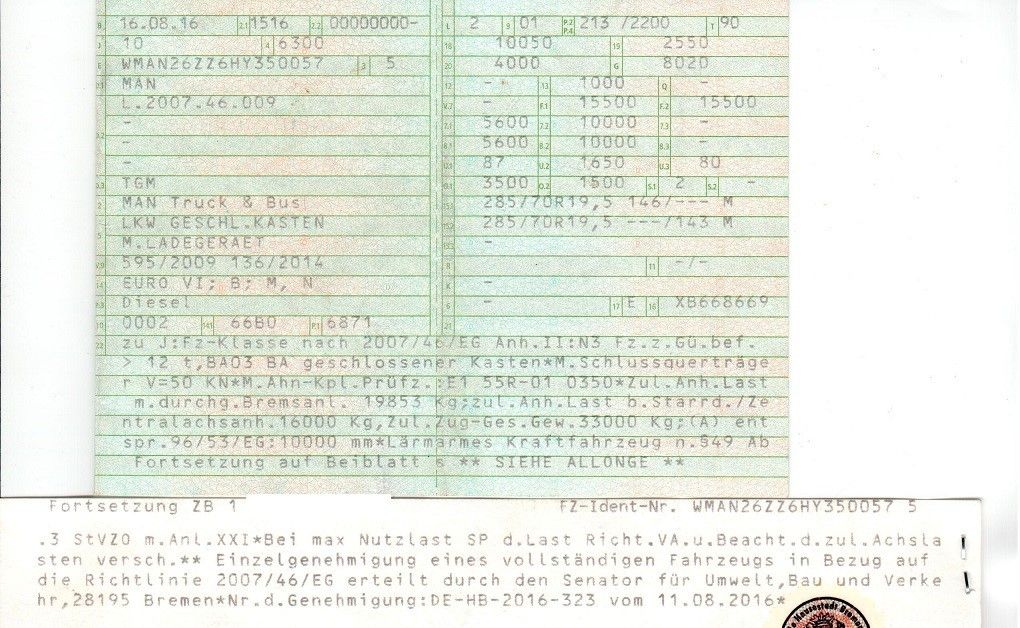 B 16.08.16 2.1 1516 2.2 00000000- L 2 9 01 P.2 P.4 213 /2200 T 90
J 10 4 6300 18 10050 19 2550
E WMAN26ZZ6HY350057 3 5 20 4000 G 8020
D.1 MAN 12 - 13 1000 Q -
L.2007.46.009 V.7 - F.1 15500 F.2 15500
D.2 - 7.1 5600 7.2 10000 7.3 -
- 8.1 5600 8.2 10000 8.3 -
- U.1 87 U.2 1650 U.3 80
D.3 TGM O.1 3500 O.2 1500 S.1 2 S.2 -
2 MAN Truck & Bus 285/70R19,5 146/--- M
5 LKW GESCHL.KASTEN 285/70R19,5 ---/143 M
M.LADEGERAET -
V.9 595/2009 136/2014 R 11 -/-
14 EURO VI; B; M, N K -
P.3 Diesel 6 - 17 E 16 XB668669
10 0002 14.1 66B0 P.1 6871 21
22 zu J:Fz-Klasse nach 2007/46/EG Anh.II:N3 Fz.z.Gü.bef.
> 12 t,BA03 BA geschlossener Kasten*M.Schlussquerträge
r V=50 KN*M.Ahn-Kpl.Prüfz.:E1 55R-01 0350*Zul.Anh.Last
m.durchg.Bremsanl. 19853 Kg;zul.Anh.Last b.Starrd./Ze
ntralachsanh.16000 Kg,Zul.Zug-Ges.Gew.33000 Kg;(A) ent
spr.96/53/EG:10000 mm*Lärmarmes Kraftfahrzeug n.§49 Ab
Fortsetzung auf Beiblatt s ** SIEHE ALLONGE **
Fortsetzung ZB 1 FZ-Ident-Nr. WMAN26ZZ6HY350057 5
.3 StVZO m.Anl.XXI*Bei max Nutzlast SP d.Last Richt.VA.u.Beacht.d.zul.Achsla
sten versch.** Einzelgenehmigung eines vollständigen Fahrzeugs in Bezug auf
die Richtlinie 2007/46/EG erteilt durch den Senator für Umwelt,Bau und Verke
hr,28195 Bremen*Nr.d.Genehmigung:DE-HB-2016-323 vom 11.08.2016*